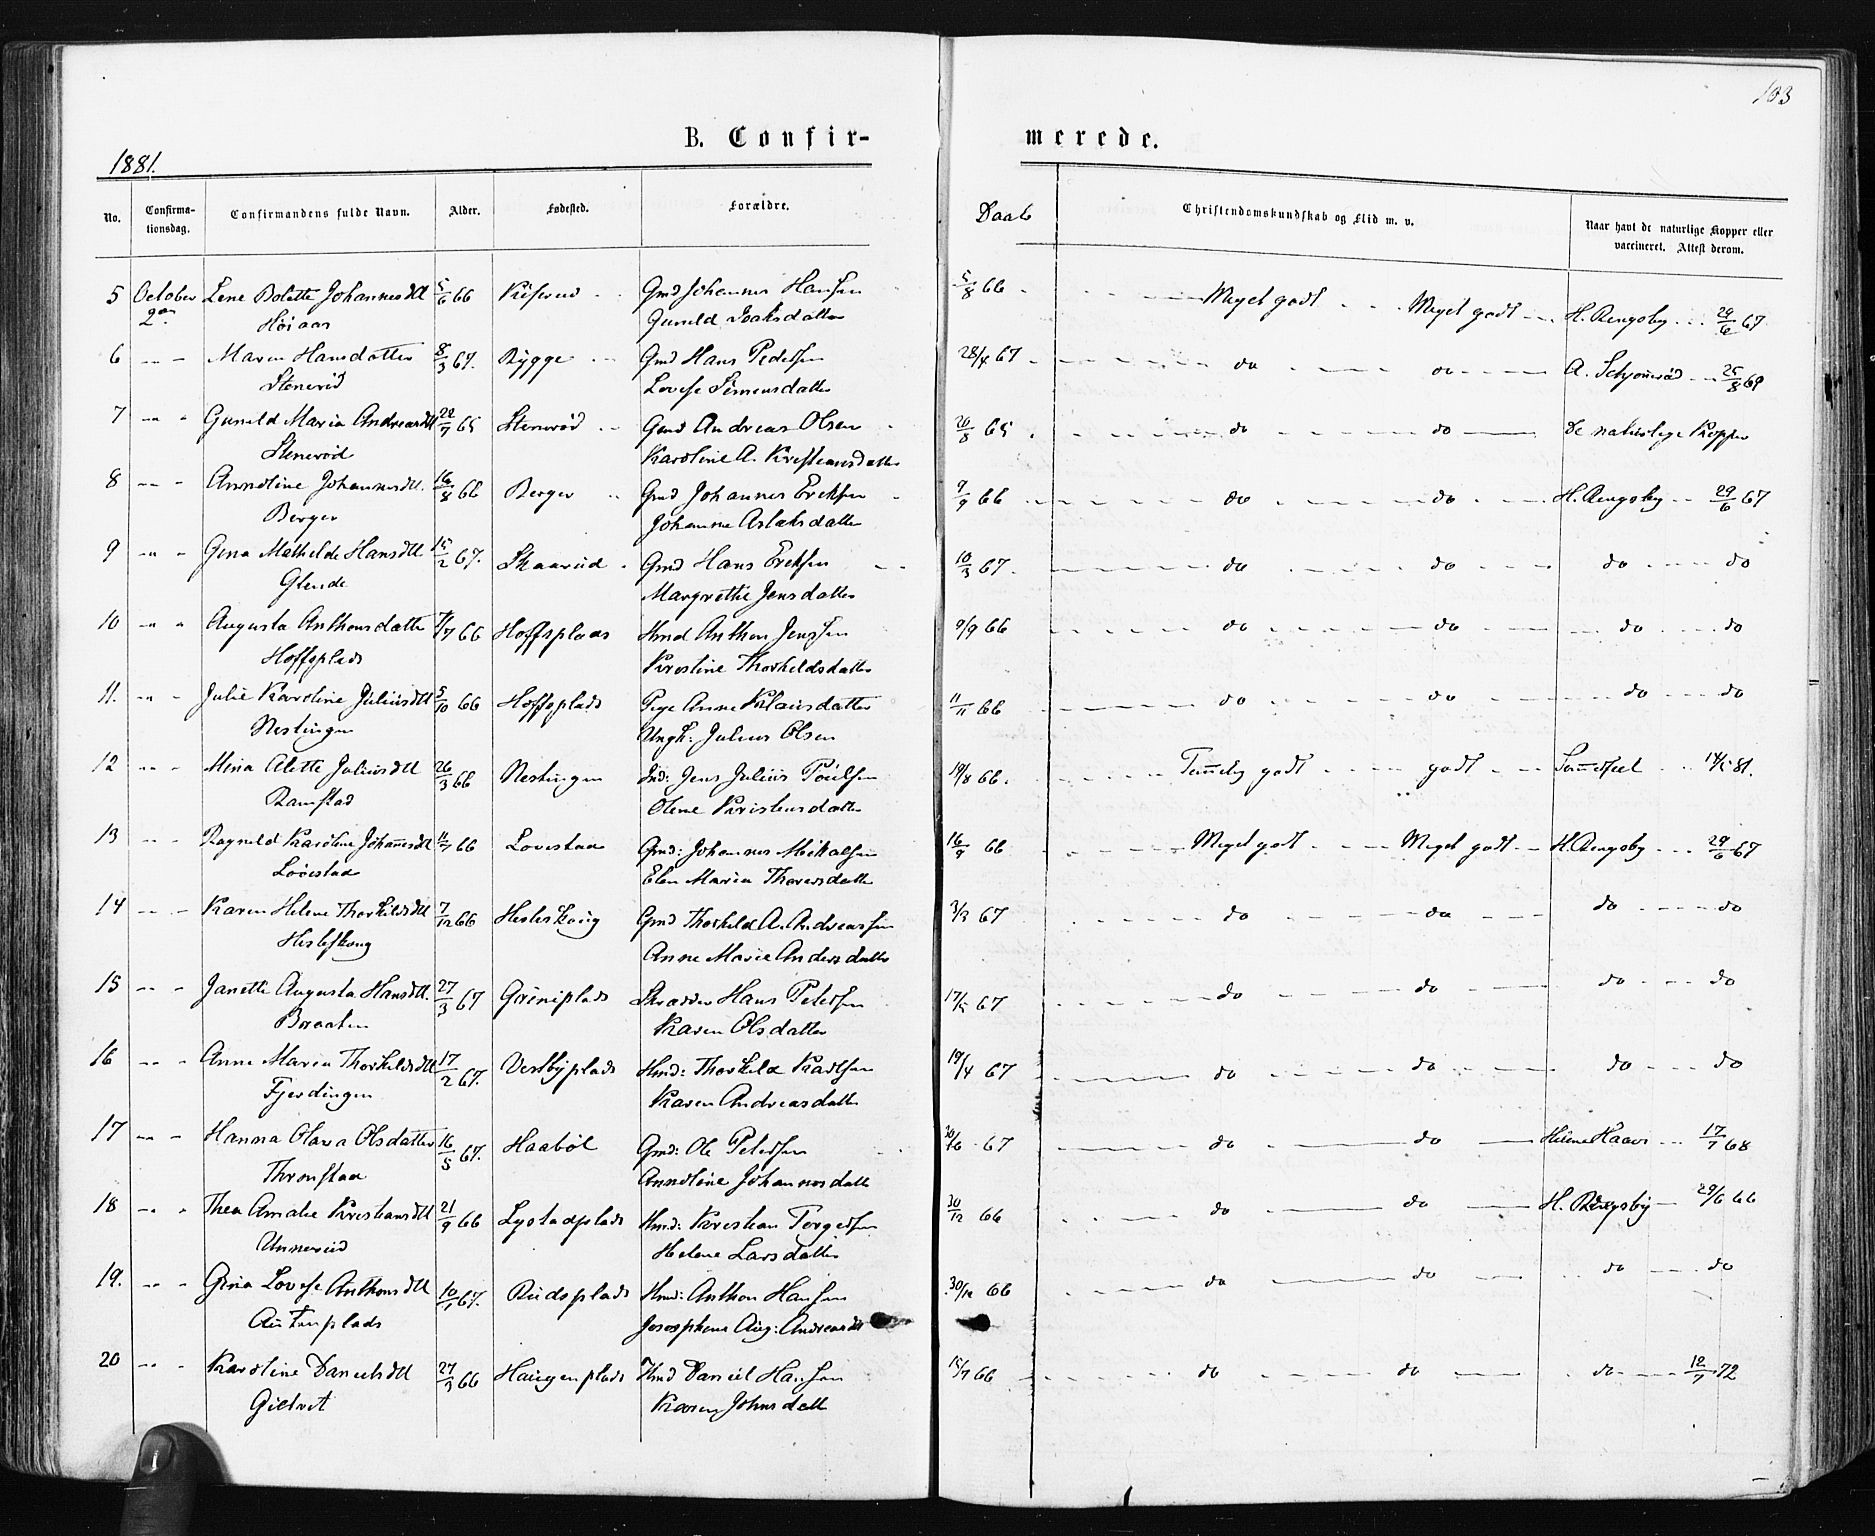 103
B. Confirmerede.
1881.
No. Confirmationsdag. Confirmandens fulde Navn. Alder. Fødested. Forældre. Daab Christendomskundskab og Flid m. v. Naar havt de naturlige Kopper eller vaccineret. Attest derom.
5 October Lene Bolette Johannesdtt 5/6 66 Gmd Johannes Hansen 5/8 66 Meget godt Meget godt H. Rengsby 29/6 67
2den Høiaas Gunild
6 Maren Hansdatter 8/3 67. Rygge Gmd Hans Pedersen 28/4 67 do do 25/8 69
Stenerød Lovise Simensdatter
7 Gunild Maria Andreasdtt 65 Stenerød Gmd Andreas Olsen 20/8 65 do do De naturlige Kopper
Stenerød Karoline A. Kristiansdatter
8 Annoline Johannesdtt. 16/8 66 Berger Gmd Johannes Eriksen 66 do do H. Rengsby 29/6 67
Berger Johanne Aslaksdatter
9 Gina Mathilde Hansdtt 15/2 67. Skaarud Gmd Hans Eriksen 10/3 67 do do do do
Glende Margrethe Jensdatter
10 Augusta Anthonsdatter 66 Hoffsplads Hmd Anthon Jenssen 9/9 66 do do do do
Hoffsplads Kirstine Thorkildsdatter
11. Julie Karoline Juliusdtt 5/10 66 Hoffsplads Pige Anne Klausdatter 11/11 66 do do do do
Nestingen Ungk: Julius Olsen
12 Mina Alette Juliusdtt 26/3 66 Nestingen Ind: Jens Julius 19/8 66. Temmelig godt godt 81.
Ramstad Olene Kristensdatter
13 Ragnild Karoline Johannesdtt 66 Lovestad Gmd: Johannes Mikalsen 16/9 66 Meget godt Meget godt H. Rengsby 29/6 67
Lovestad Elen Maria Thorersdatter
14 Karen Helene Thorkildsdtt 7/12 66 Hesleskoug Gmd Thorkild A. Andreassen 3/3 67 do do do do
Hesleskoug Anne Marie Andersdatter
15 Janette Augusta Hansdtt. 27/3 67 Griniplads Skrædder Hans Petersen 67 do do do do
Braaten Karen Olsdatter
16 Anne Maria Thorkildsdtt 17/2 67. Vestbyplads Hmd: Thorkild Karlsen 19/4 67 do do do do
Fjerdingen Karen Andreasdatter
17 Hanna Olava Olsdatter 16/5 67. Haabøl Gmd: Ole Petersen 30/6 67 do do Helene Haaves 17/7 68
Thronstad Annoline Johannesdatt
18 Thea Amalie Kristiansdtt 21/9 66 Lystadplads Hmd: Kristian Torgersen 30/12 66 do do H. Rengsby 29/6 66
Unnerud Helene Larsdatter
19. Gina Lovise Anthonsdtt 10/1 67. Rudsplads Hmd: Anthon Hansen 30/12 66 do do do do
Josephene Aug: Andreasdt
20 Karoline Danielsdtt 27/3 66 Haugenplads Hmd Daniel Hansen 15/7 66 do do do 12/7 72
Karen Johnsdatt